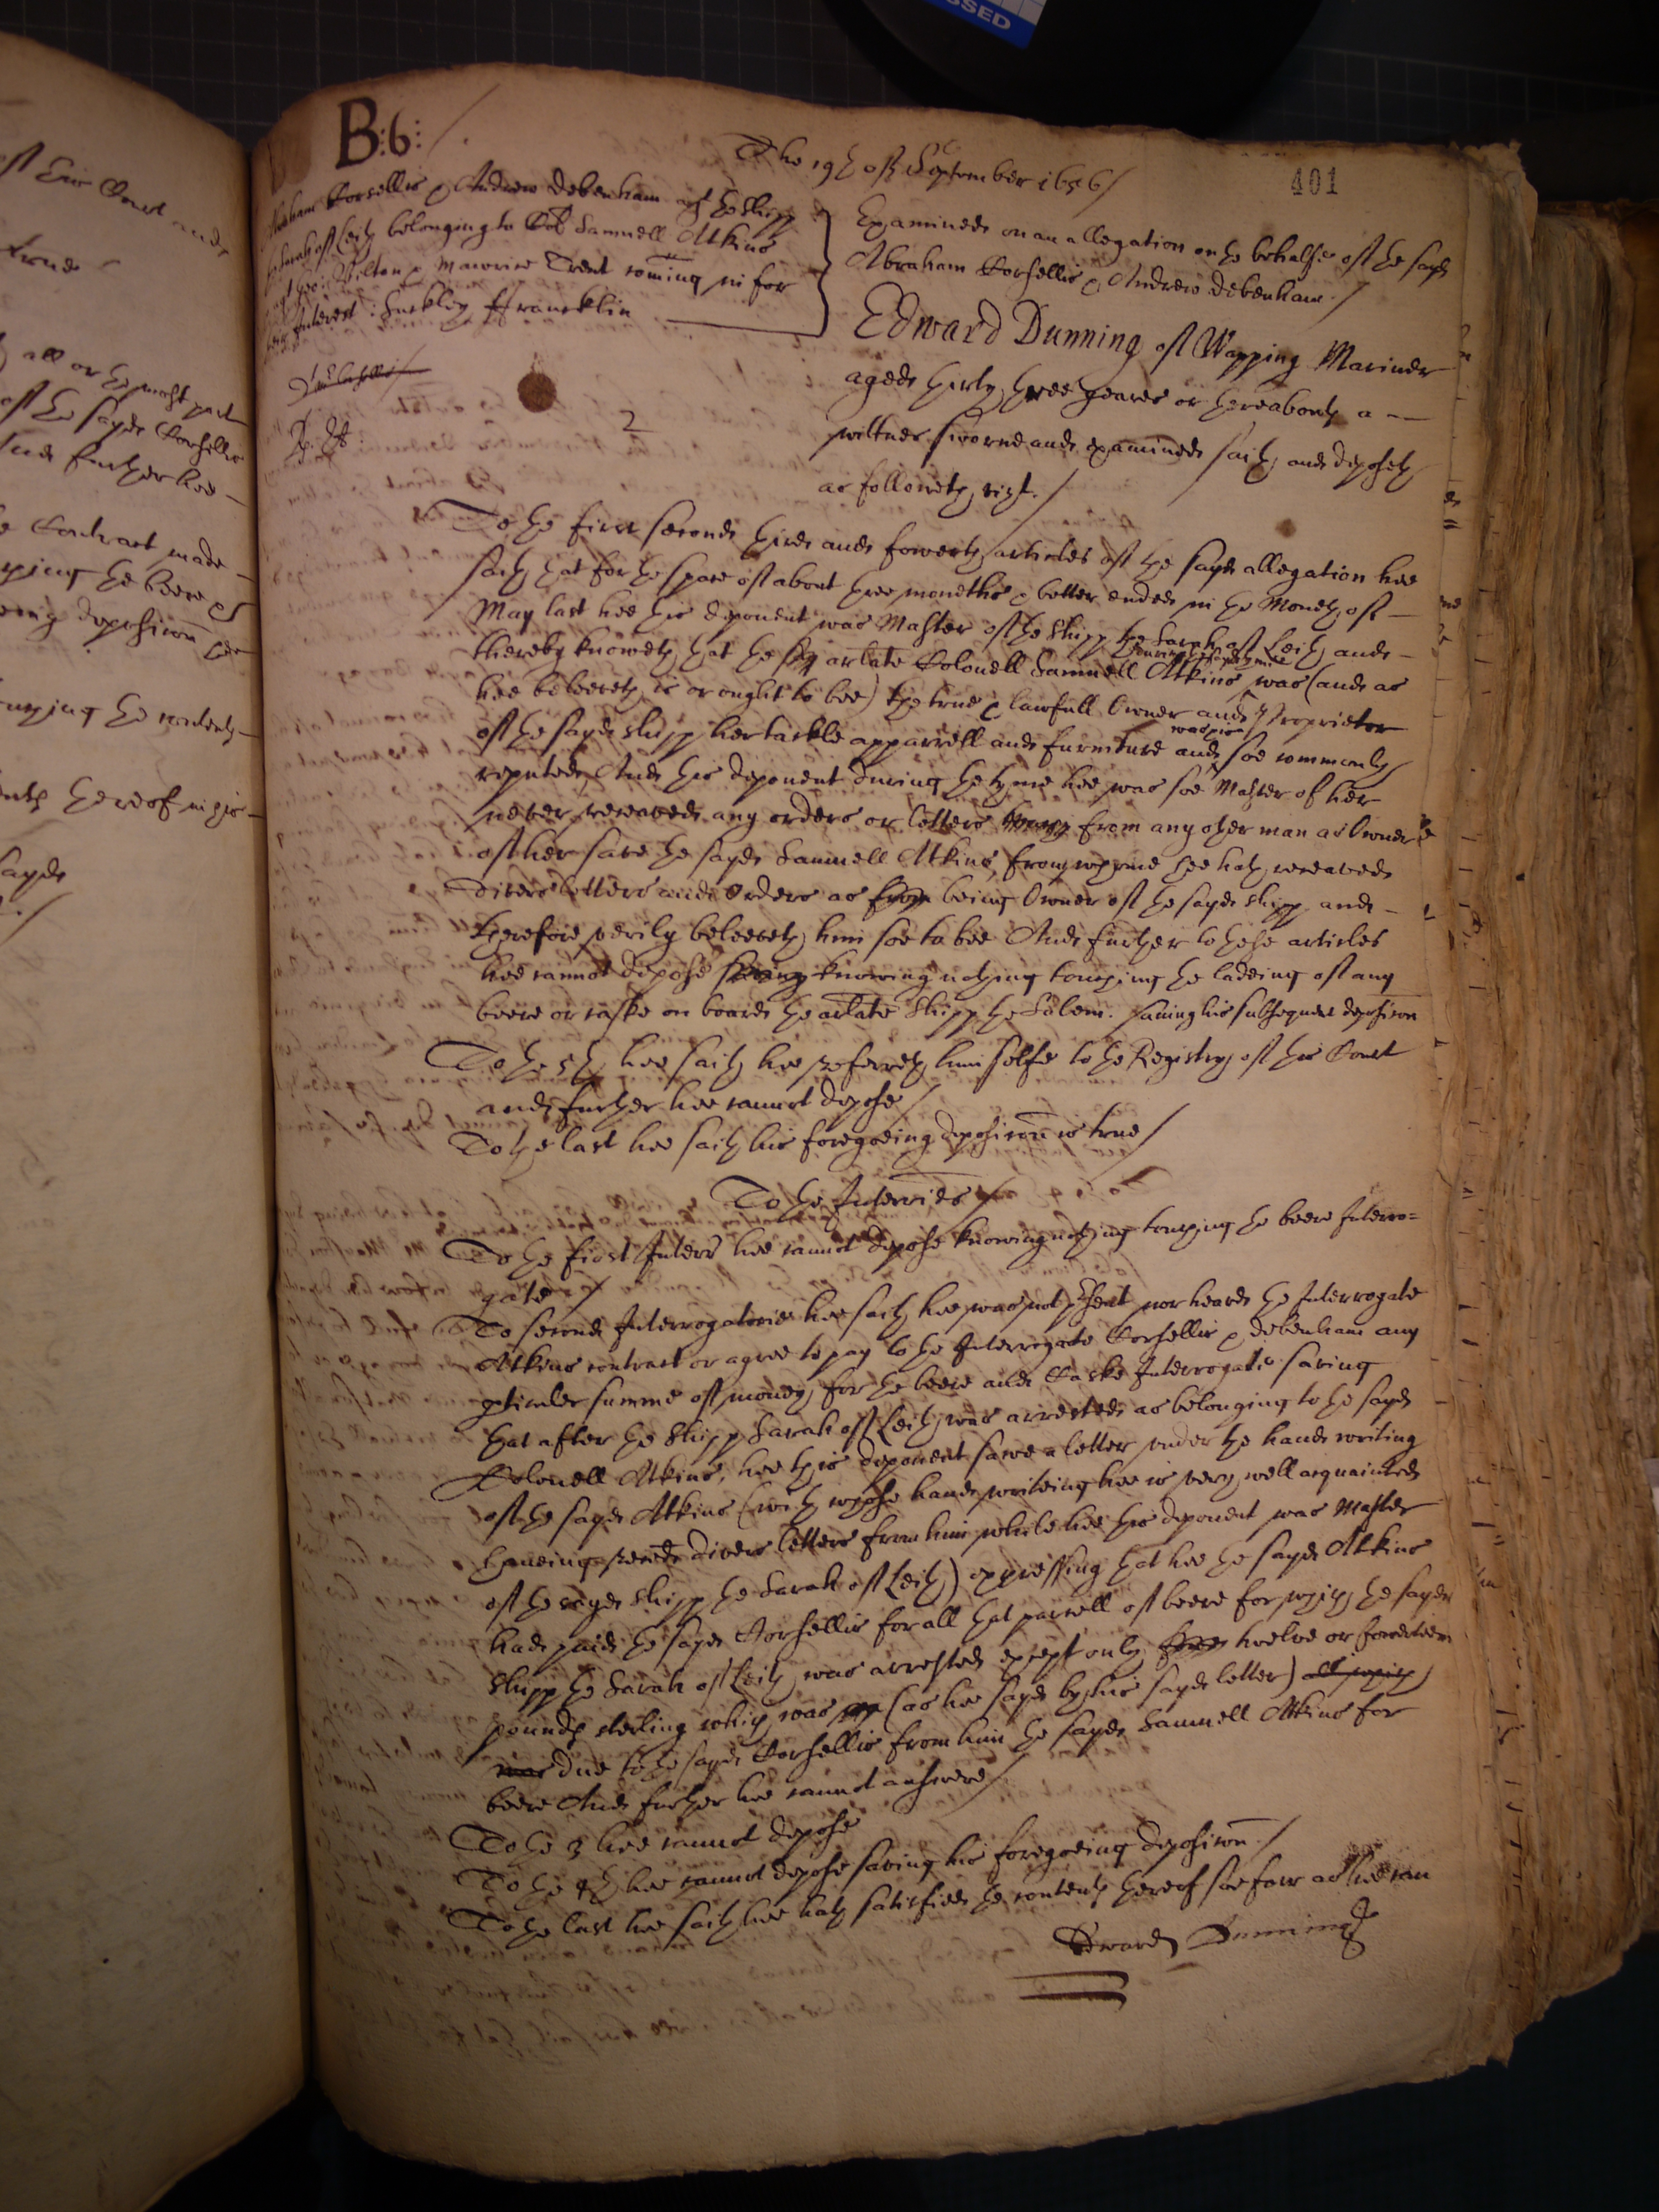 B:6:
The 19th of September 1656/
401
Abraham Corsellis & Andrew Debenham agt the shipp
the Sarah of Leith belonging to Col Samuell Atkins
agt Geo: Milton & Maurice Trent coming in for
their Interest: Suckley Francklin
Examined on an allegation on the behalfe of the sayd
Abraham Corsellis & Andrew Debenham./
Edward Dunning of Wapping Mariner
aged thirty three yeares or thereabouts a
wittnes sworne and examined saith and deposeth
as followeth, vizt./
2
To the first second third and fowerth articles of the sayd allegation hee
saith that for the space of about three moneths & better ended in the Moneth of
May last hee this deponent was Master of the shipp the Sarah of Leith and
thereby knoweth that the arlate Colonell Samuell Atkins during that tyme was (and as
hee beleeveth is or ought to bee) the true & lawfull Owner and Proprietor
of the sayd shipp her tackle apparrell and furniture and was soe commonly
reputed, And this deponent during the tyme hee was soe Master of her
never receaved any orders or letters from any other man as Owner
of her save the sayd Samuell Atkins, from whome hee hath receaved
divers letters and Orders as from being Owner of the sayd shipp and
therefore verily beleeveth him soe to bee And further to these articles
hee cannot depose saving knowing nothing touching the ladeing of any
beere or caske on board the arlate shipp the Salem. saving his subsequent deposicon
To the 5th hee saith hee referreth himselfe to the Registry of this Court
and further hee cannot depose/
To the last hee saith his foregoeing deposicon is true/
To the Interries/
To the first Interr hee cannot depose knowing nothing touching the beere Interro=
gate/
To second Interrogatorie hee saith hee was not present nor heard the Interrogate
Atkins contract or agree to pay to the Interrogate Corsellis & Debenham any
pticuler summe of money for the beere and Caske Interrogate saving
that after the shipp Sarah of Leith was arrested as belonging to the sayd
Colonell Atkins, hee this deponent sawe a letter under the hand writing
of the sayd Atkins (with whose hand writeing hee is very well acquainted
haveing receaved divers letters from him while hee this deponent was Master
of the sayd shipp the Sarah of Leith) expressing that hee the sayd Atkins
had paid the sayd Corsellis for all that parcell of beere for which the sayd
shipp the Sarah of Leith was arrested except only twelve or fowerteene
pounds sterling which was (as hee sayd by his sayd letter) all which
was due to the sayd Corsellis from him the sayd Samuell Atkins for
beere And further hee cannot answere/
To the 3 hee cannot depose
To the 4th hee cannot depose saving his foregoeing deposicon./
To the last hee saith hee hath satisfied the contents thereof soe farr as hee can
Edward Dunning